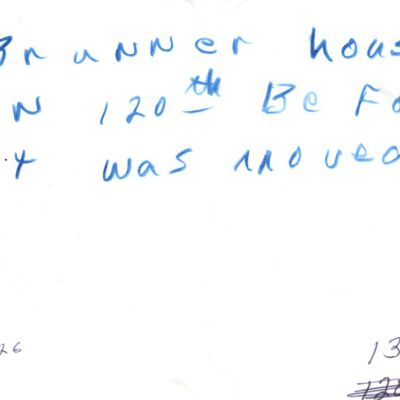 Brunner hous
on 120th Be Fo
it was moved
26
13
120